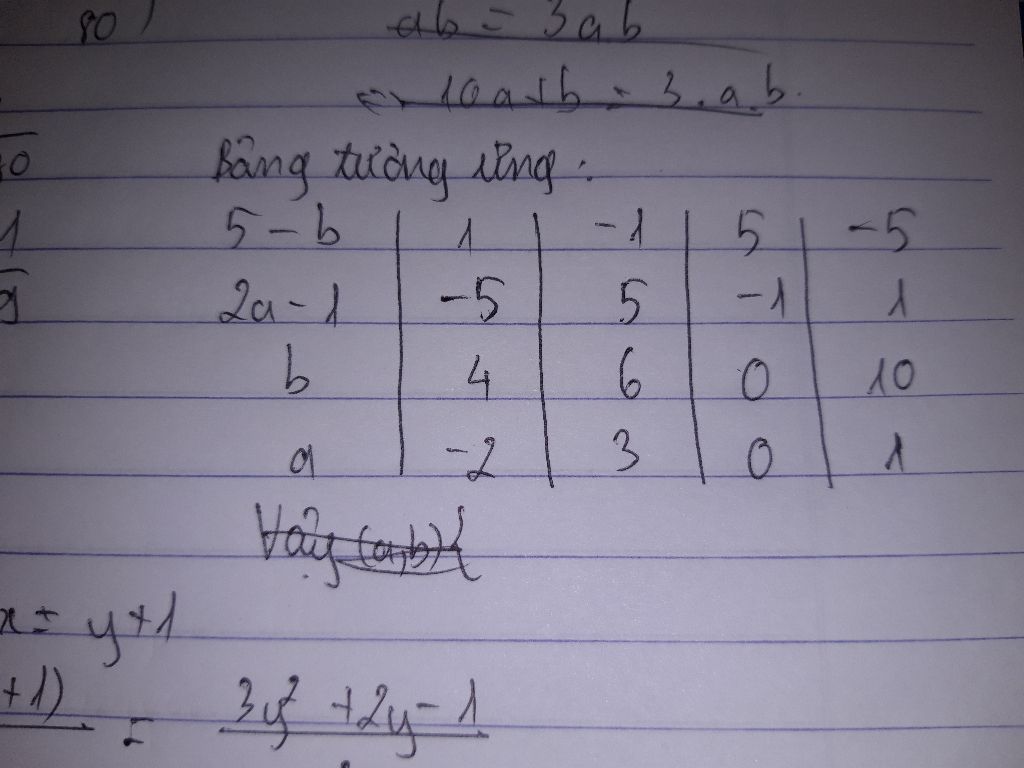 80) ab = 3ab
<=> 10a+b = 3.a.b.
Bảng tương ứng:
5 - b | 1 | -1 | 5 | -5
2a - 1 | -5 | 5 | -1 | 1
b | 4 | 6 | 0 | 10
a | -2 | 3 | 0 | 1
Vậy (a,b) {
x = y + 1
+1) = 3y² + 2y - 1